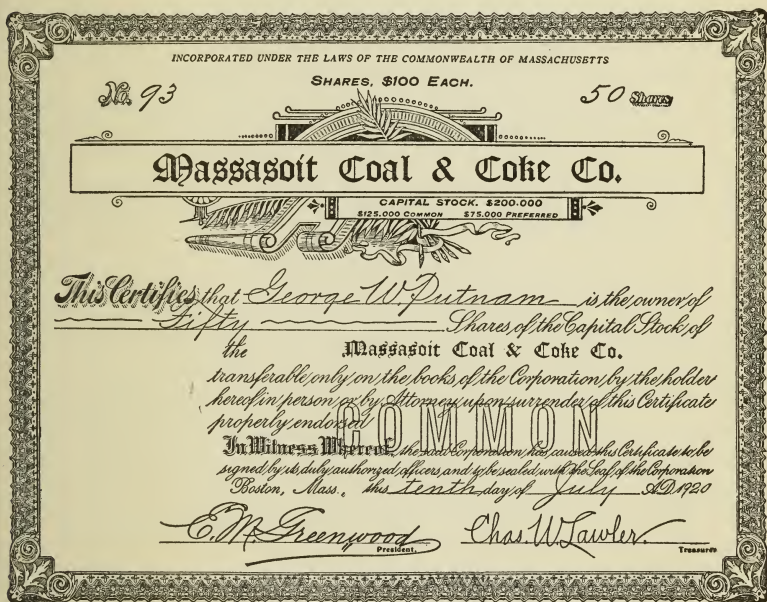 INCORPORATED UNDER THE LAWS OF THE COMMONWEALTH OF MASSACHUSETTS
SHARES, $100 EACH.
No. 93 50 Shares
Massasoit Coal & Coke Co.
CAPITAL STOCK. $200.000
$125.000 COMMON $75.000 PREFERRED
This Certifies that George W. Putnam is the owner of
Fifty Shares of the Capital Stock of
the Massasoit Coal & Coke Co.
transferable only on the books of the Corporation by the holder
hereof in person or by Attorney upon surrender of this Certificate
properly endorsed
COMMON
In Witness Whereof, the said Corporation has caused this Certificate to be
signed by its duly authorized officers and to be sealed with the Seal of the Corporation
Boston, Mass., this tenth day of July A.D. 1920
E. M. Greenwood Chas. W. Lawler.
President. Treasurer